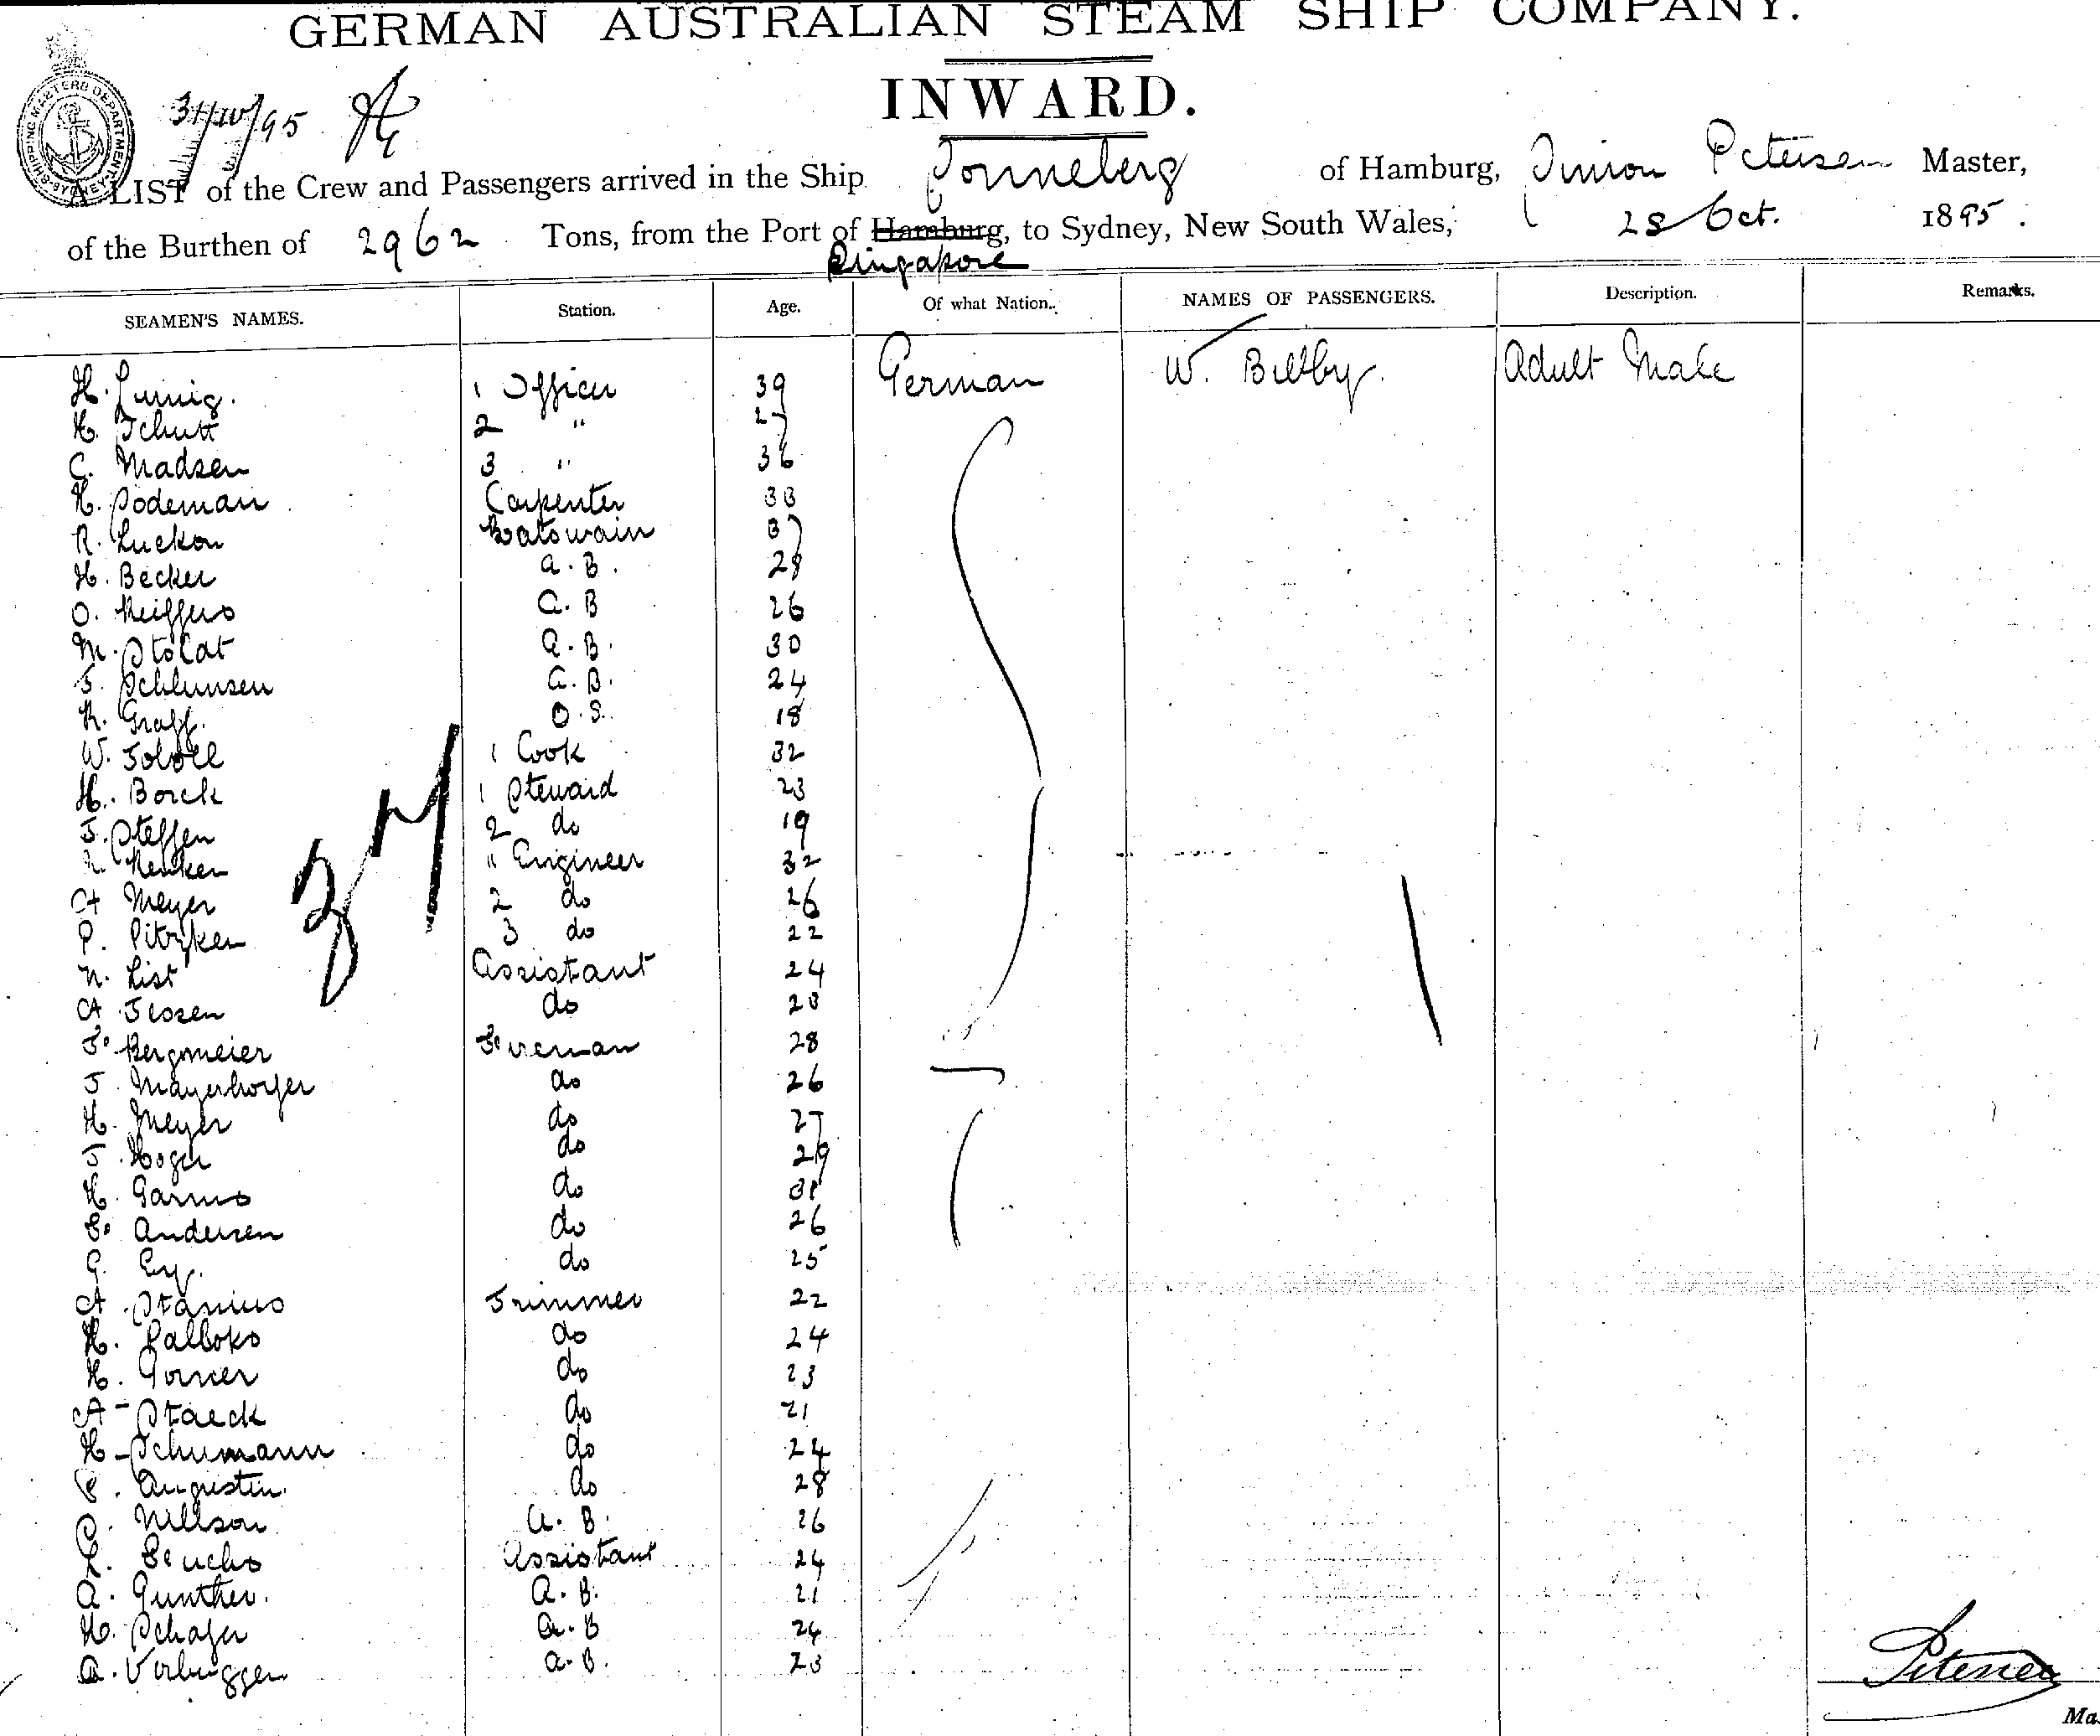 GERMAN AUSTRALIAN STEAM SHIP COMPANY.
INWARD.
SHIPPING MASTERS DEPARTMENT SYDNEY
31/10/95
A LIST of the Crew and Passengers arrived in the Ship Sonneberg of Hamburg, Petersen Master,
of the Burthen of 2962 Tons, from the Port of Hamburg, to Sydney, New South Wales, 28 Oct. 1895.
Singapore
SEAMEN'S NAMES. Station. Age. Of what Nation. NAMES OF PASSENGERS. Description. Remarks.
H. 1 Officer 39 German W. Bilby. Adult Male
H. Schutt 2 " 27
C. Madsen 3 " 36
H. Sodeman Carpenter 33
R. Luckow Batswain 37
H. Becker A.B. 28
O. A.B 26
M. Stolat A.B. 30
J. Schlunsen A.B. 24
R. Graff. O.S. 18
W. 1 Cook 32
H. Borck 1 Steward 23
J. Steffen 2 do 19
Renken " Engineer 32
A Meyer 2 do 26
P. 3 do 22
N. List Assistant 24
A Jessen do 23
F. Bergmeier Fireman 28
J. Mayerhofer do 26
H. Meyer do 27
J. Hoger do 29
H. do
F. Andersen do 26
G. Ey. do 25
A. Stanius Trimmer 22
H. do 24
H. do 23
A - Staeck do 21
H - Schumann do 24
Augustin. do 28
Nillson A.B. 26
Assistant 24
A. Gunther. A.B. 21
H. Schafer A.B 24
A. Verbruggen A.B. 23
37
Petersen
Ma